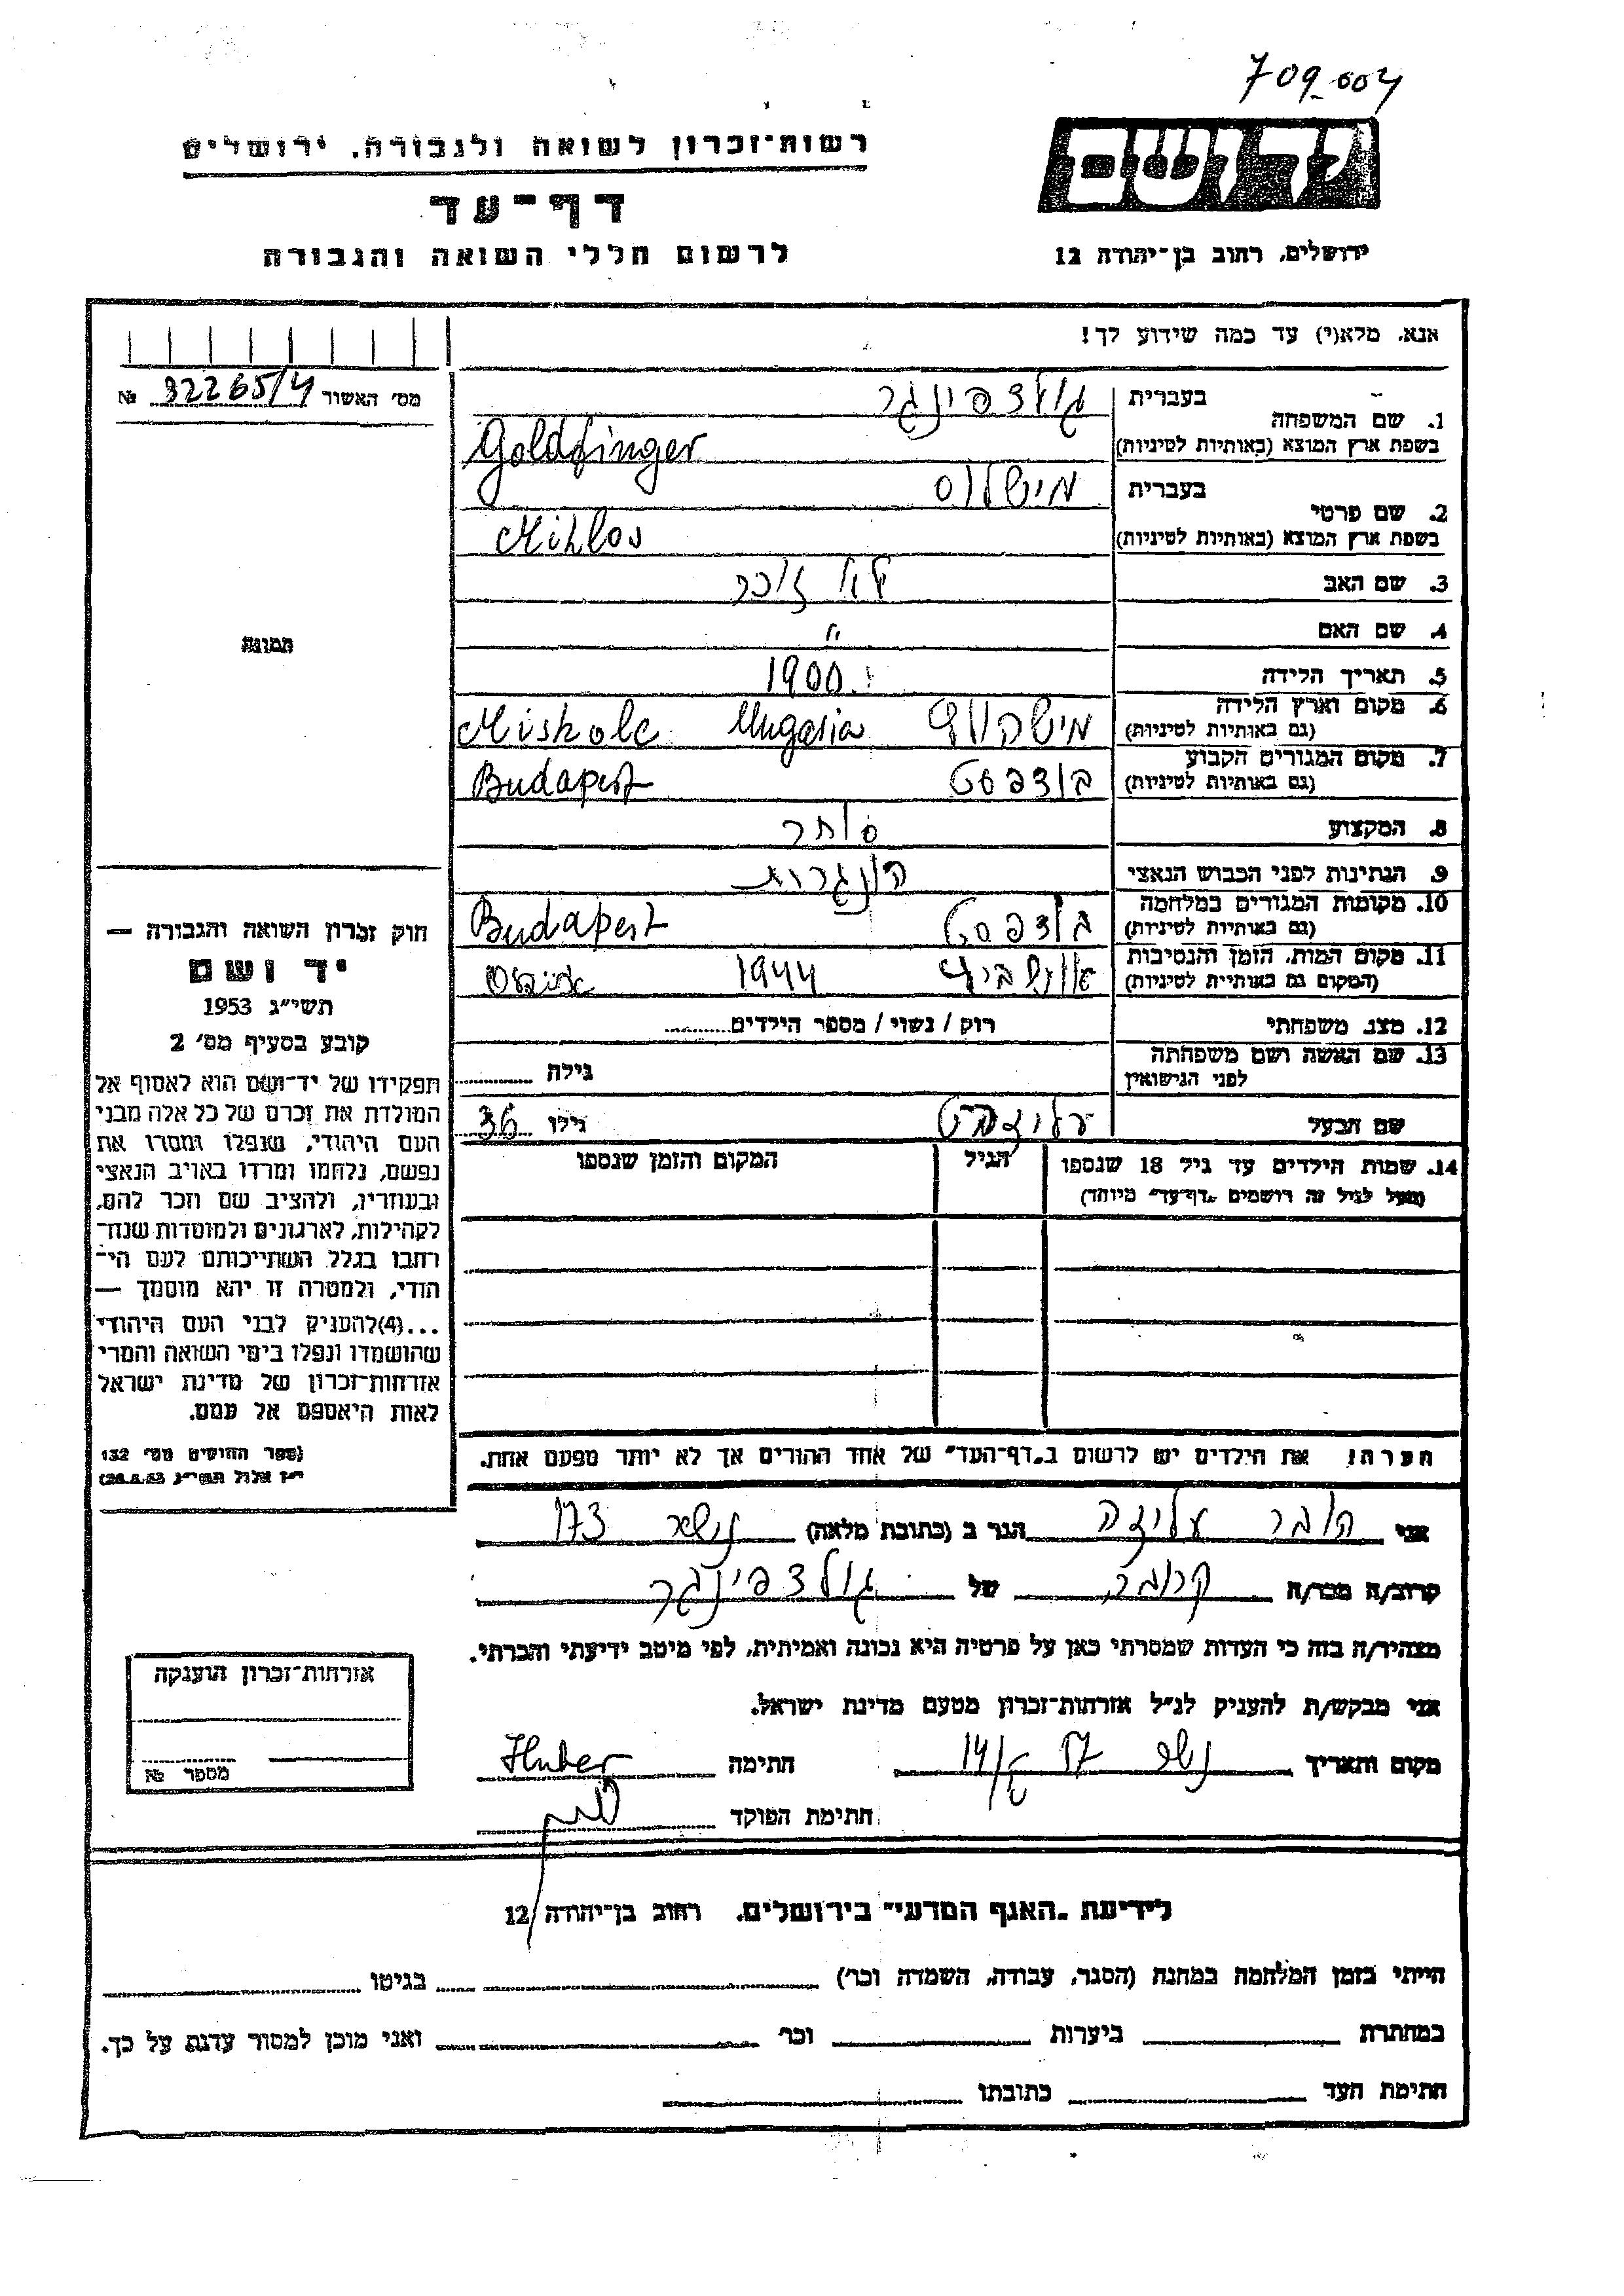 709_004
רשות־זכרון לשואה ולגבורה, ירושלים
יד ושם
דף־עד
לרשום חללי השואה והגבורה
ירושלים, רחוב בן־יהודה 12
אנא, מלא(י) עד כמה שידוע לך!
מס׳ האשור № 32265/4
1. שם המשפחה
בעברית גולדפינגר
בשפת ארץ המוצא (באותיות לטיניות) Goldfinger
2. שם פרטי
בעברית מיקלוס
בשפת ארץ המוצא (באותיות לטיניות) Miklos
3. שם האב לא זוכר
4. שם האם "
תמונה
5. תאריך הלידה 1900
6. מקום וארץ הלידה Miskolc Ungaria
(גם באותיות לטיניות)
7. מקום המגורים הקבוע בודפסט Budapest
(גם באותיות לטיניות)
8. המקצוע סוחר
9. הנתינות לפני הכבוש הנאצי הונגרית
10. מקומות המגורים במלחמה בודפסט Budapest
(גם באותיות לטיניות)
11. מקום המות, הזמן והנסיבות אושביץ 1944
(המקום גם באותיית לטיניות)
12. מצב משפחתי רוק / נשוי / מספר הילדים
13. שם האשה ושם משפחתה
לפני הנישואין גילה
שם הבעל גילו 36
14. שמות הילדים עד גיל 18 שנספו
(מעל לגיל זה רושמים „דף־עד״ מיוחד)
הגיל
המקום והזמן שנספו
חוק זכרון השואה והגבורה —
יד ושם
תשי״ג 1953
קובע בסעיף מס׳ 2
תפקידו של יד־ושם הוא לאסוף אל
המולדת את זכרם של כל אלה מבני
העם היהודי, שנפלו ומסרו את
נפשם, נלחמו ומרדו באויב הנאצי
ובעוזריו, ולהציב שם וזכר להם,
לקהילות, לארגונים ולמוסדות שנח־
רבו בגלל השתייכותם לעם הי־
הודי, ולמטרה זו יהא מוסמך —
...(4)להעניק לבני העם היהודי
שהושמדו ונפלו בימי השואה והמרי
אזרחות־זכרון של מדינת ישראל
לאות היאספם אל עמם.
(ספר החוקים מס׳ 132
י״ז אלול תשי״ג 28.8.53)
הערה! את הילדים יש לרשום ב„דף־העד״ של אחד ההורים אך לא יותר מפעם אחת.
אני הובר עליזה הגר ב (כתובת מלאה) 173
קרוב/ה מכר/ה של גולדפינגר
מצהיר/ה בזה כי העדות שמסרתי כאן על פרטיה היא נכונה ואמיתית, לפי מיטב ידיעתי והכרתי.
אני מבקש/ת להעניק לנ״ל אזרחות־זכרון מטעם מדינת ישראל.
מקום ותאריך חתימה Huber
חתימת הפוקד
אזרחות־זכרון הוענקה
מספר №
לידיעת „האגף המדעי״ בירושלים, רחוב בן־יהודה 12
הייתי בזמן המלחמה במחנה (הסגר, עבודה, השמדה וכר׳) בגיטו
במחתרת ביערות וכר׳ ואני מוכן למסור עדות על כך.
חתימת העד כתובתו